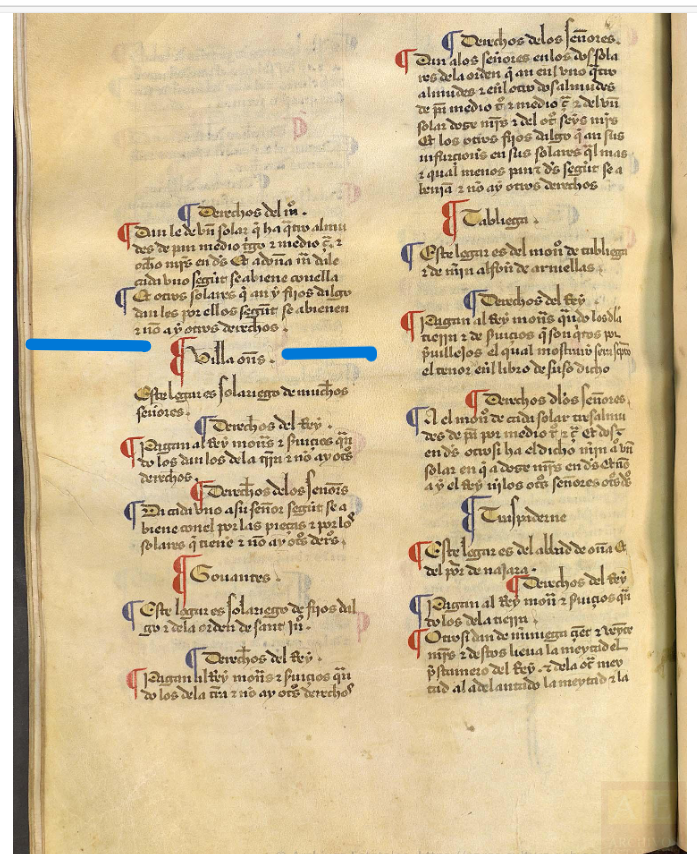 Derechos del m̃o.
Dan le de vn̄ solar q̄ ha q̄tro almu
des de pan medio tigo ⁊ medio ç̄. ⁊
ocho mr̄s en dos Et adona m̃ dale
cada vno segūt se abiene con ella
Et otros solares q̄ an y fijos dalgo
dan les por ellos segūt se abienen
⁊ nō a y otros derechos.
Villa ons̄.
Este logar es solariego de muchos
señores.
Derechos del Rey.
Pagan al Rey mon̄s ⁊ s̃uiçios q̄n
do los dan los dela tr̄ra ⁊ nō ay ot̄s
derechos.
Derechos delos señor̄s
Da cada vno a su señor segūt se a
biene con el por las pieças ⁊ por lo
solares q̄ tiene ⁊ nō ay ot̄s der̄s.
Gouantes.
Este logar es solariego de fijos dal
go ⁊ dela orden de sant Jū.
Derechos del Rey.
Pagan al Rey mon̄s ⁊ s̃uiçios q̄n
do los dela tr̄ra ⁊ nō ay ot̄s derechos
Derechos delos señores.
Dan alos señores en los dos sola
res dela orden q̄ an en el vno q̄tro
almudes ⁊ en el otro dos almudes
de pā medio t̄. ⁊ medio ç̄ ⁊ del vn̄
solar doze mr̄s ⁊ del ot̄ seys mr̄s
Et los otros fijos dalgo q̄ an sus
infurçiones en sus solares q̄l mas
⁊ qual menos pan ⁊ ds̄ segūt se a
benian ⁊ nō ay otros derechos
Tabliega.
Este logar es del mon̄ de tabliega
⁊ de alfon̄ de arniellas.
Derechos del Rey
Pagan al Rey mon̄s q̄ndo los dla
tierra ⁊ de s̃uiçios q̄ son q̄tos por
p̃uillejos el qual mostraro
el tenor en el libro de suso dicho
Derechos dlos señores
A el mon̄ de cada solar tres almu
des de pā por medio t̄. ⁊ ç̄ Et dos
en ds̄ otrosi ha el dicho a vn̄
solar en q̄ a doze mr̄s en ds̄ Et nō
a y el Rey ni los ot̄s señores ot̄s ds̄
Traspaderne
Este logar es del abbad de oña Et
del p̃or de najara.
Derechos del Rey
Pagan al Rey mon̄ ⁊ s̃uiçios q̄n
do los dela tierra.
Otrosi dan de çiet ⁊ veynte
mr̄s ⁊ destos lieua la meytad el
p̃stamero del Rey. ⁊ dela ot̄ mey
tad al adelantado la meytad ⁊ la